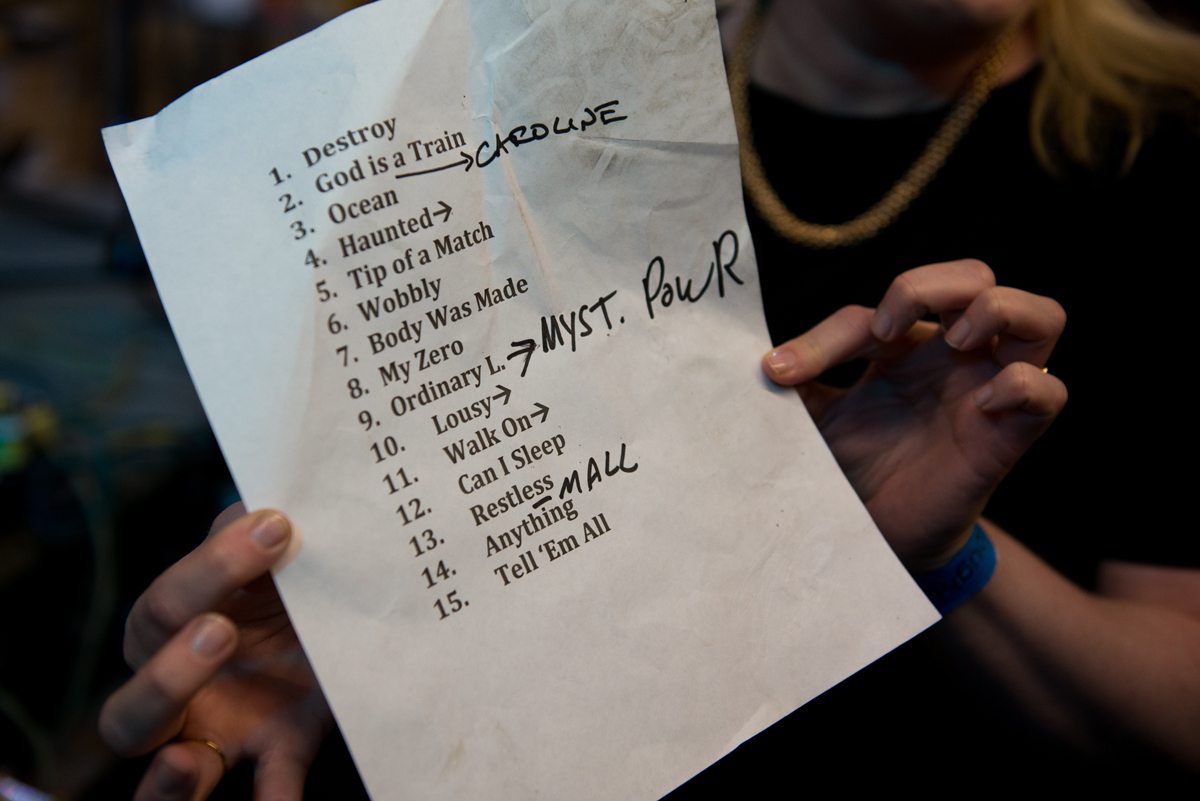 1. Destroy
2. God is a Train → CAROLINE
3. Ocean
4. Haunted→
5. Tip of a Match
6. Wobbly
7. Body Was Made
8. My Zero
9. Ordinary L. → MYST. POWR
10. Lousy→
11. Walk On→
12. Can I Sleep
13. Restless - MALL
14. Anything
15. Tell ‘Em All